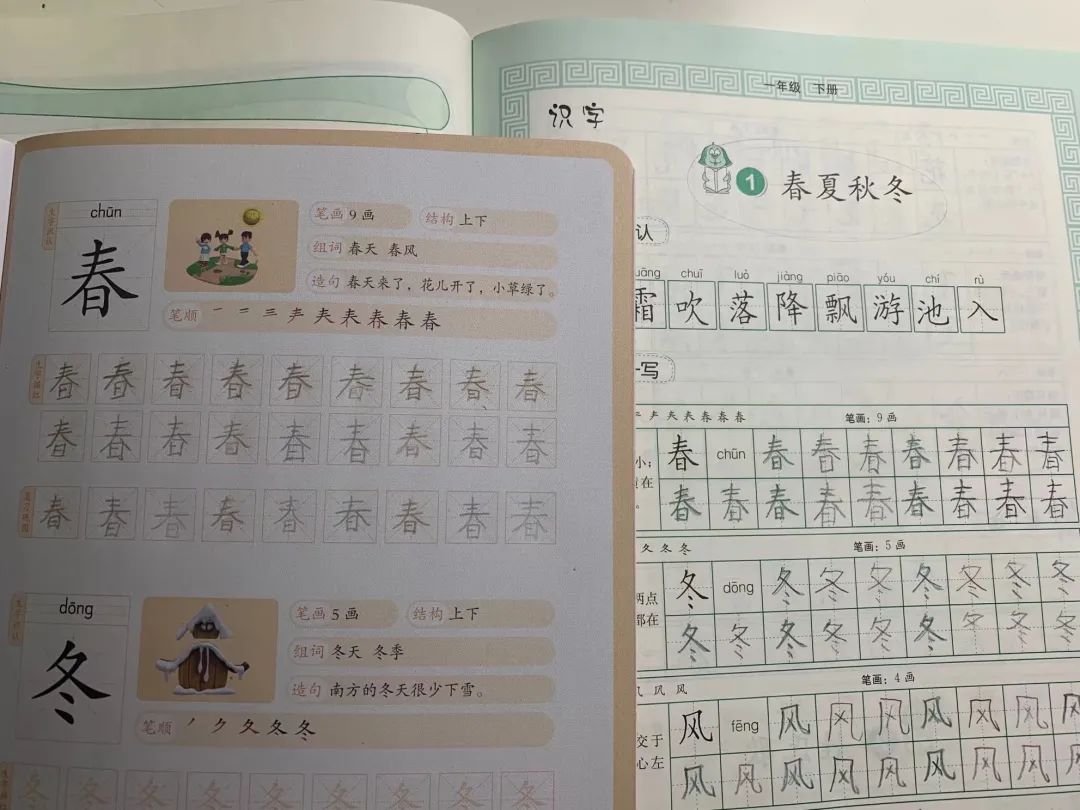 chūn
生字识认
春
笔画 9 画 结构 上下
组词 春天 春风
造句 春天来了，花儿开了，小草绿了。
笔顺
春 春 春 春 春 春 春 春 春
春 春 春 春 春 春 春 春 春
春 春 春 春 春 春 春 春 春
dōng
冬
笔画 5 画 结构 上下
组词 冬天 冬季
造句 南方的冬天很少下雪。
笔顺 丿 ク 夂 冬 冬
冬 冬 冬 冬 冬 冬 冬 冬 冬
一年级 下册
识字
1 春夏秋冬
认
uāng chuī luò jiàng piāo yóu chí rù
霜 吹 落 降 飘 游 池 入
写
笔画：9 画
小； 春 chūn 春 春 春 春 春 春 春
在 春 春 春 春 春 春 春 春 春
夂 冬 冬 笔画：5 画
两点 冬 dōng 冬 冬 冬 冬 冬 冬 冬
都在 冬 冬 冬 冬 冬 冬 冬 冬 冬
几 凤 风 笔画：4 画
交于 风 fēng 风 风 风 风 风 风 风
心左 风 风 风 风 风 风 风 风 风